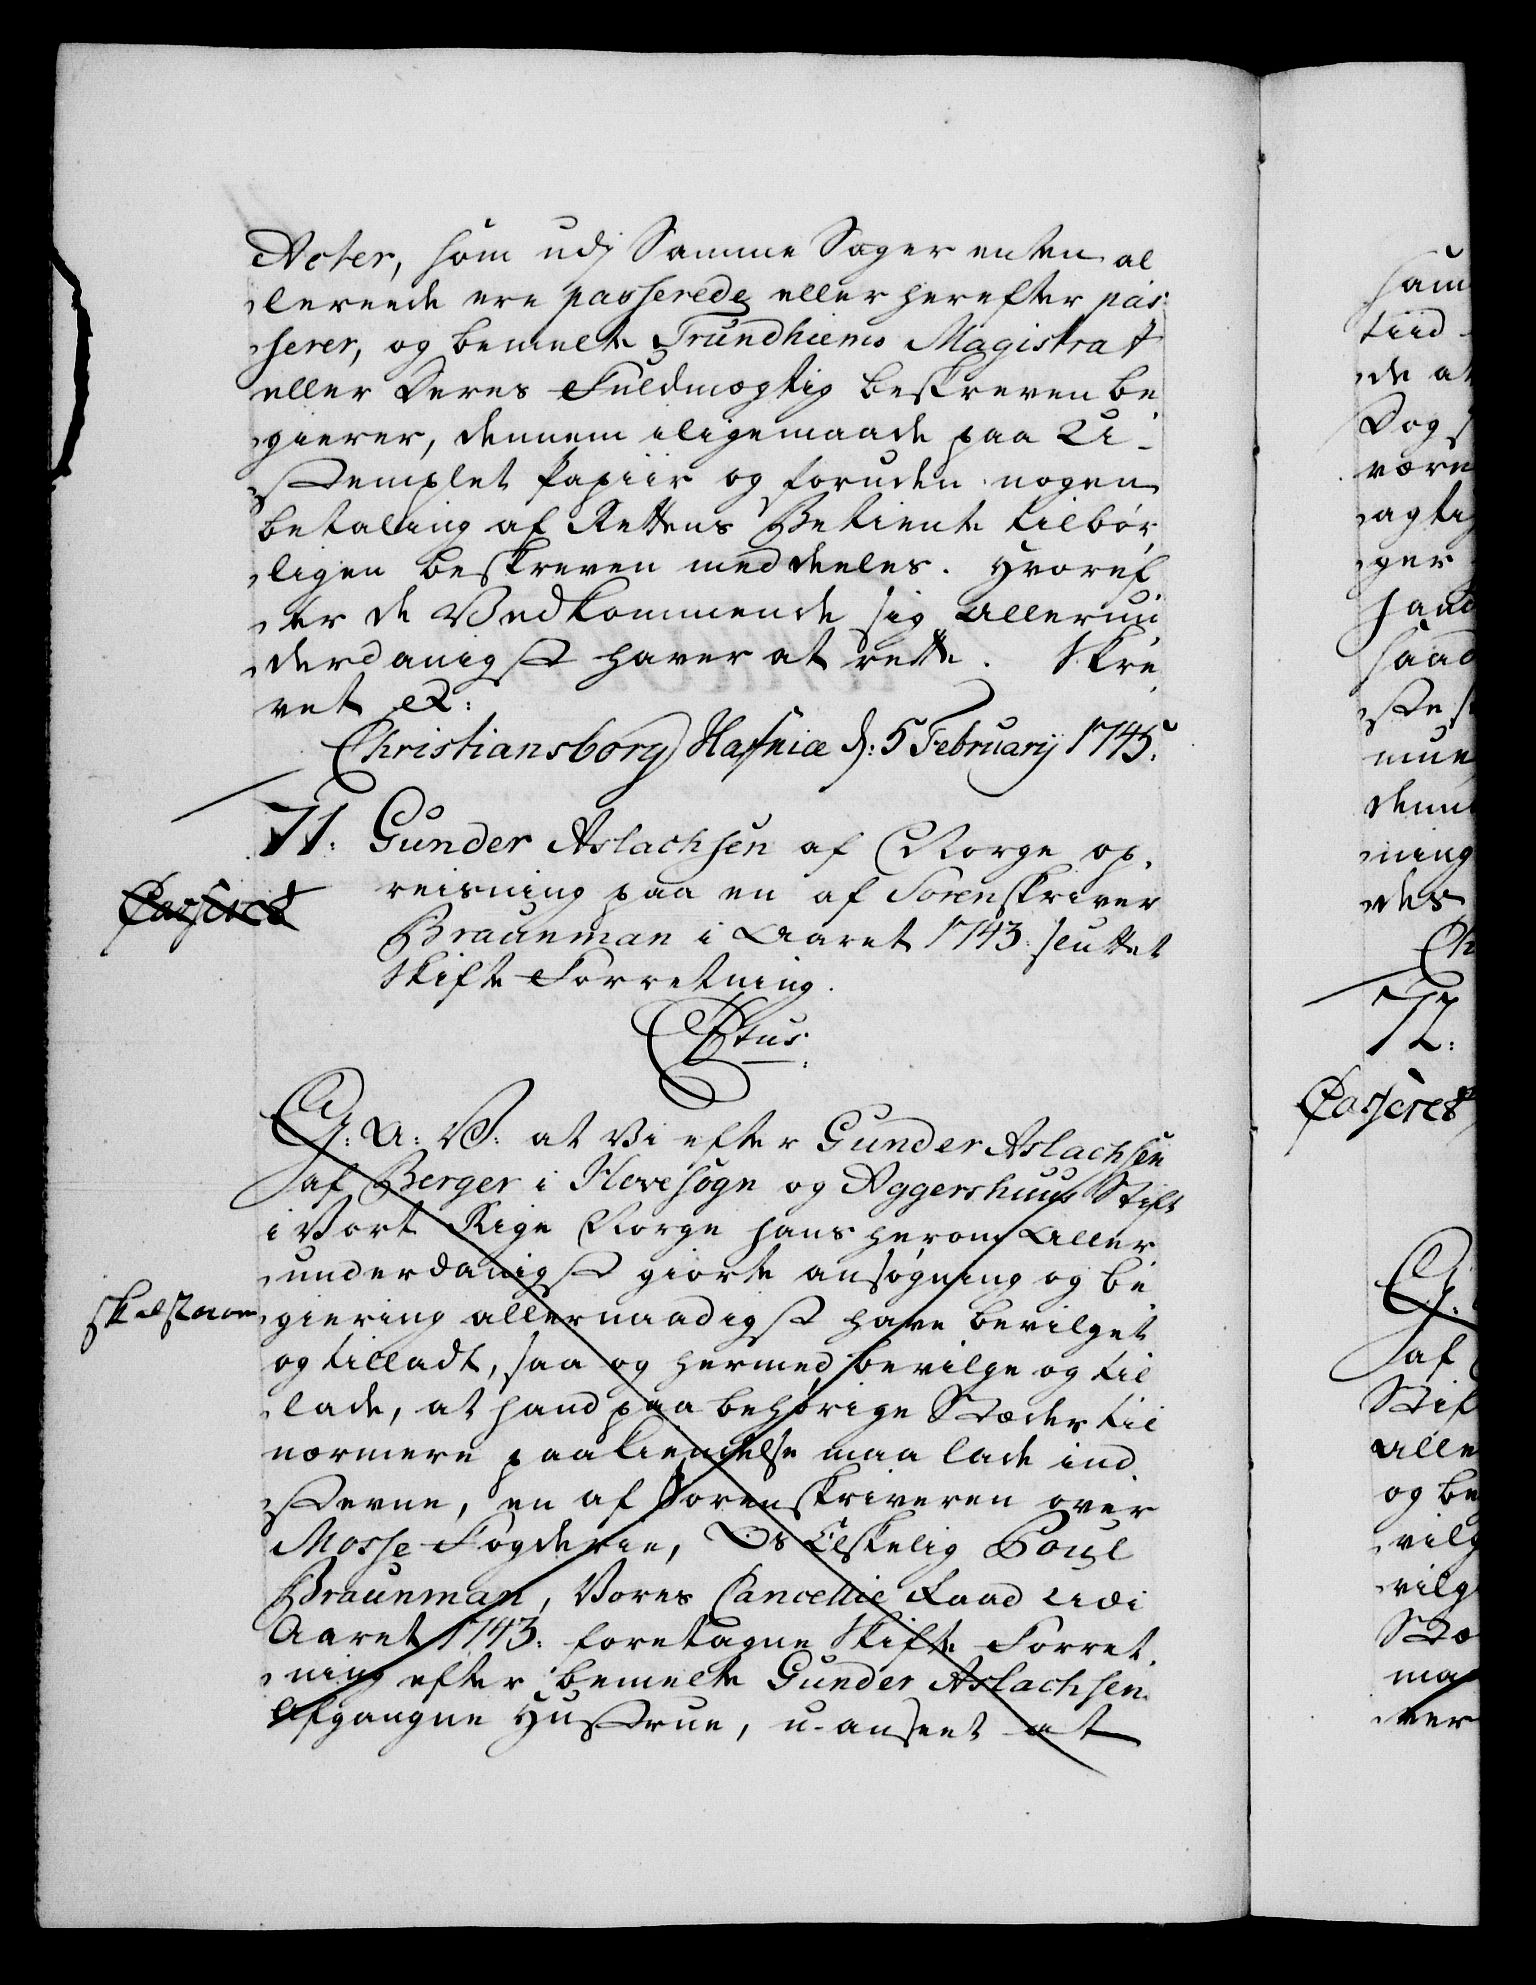 Acter, som udj Samme Sager enten al
lereede ere passerede eller herefter pas:
serer, og bemelte Trundhiems Magistrat
eller deres Fuldmægtig beskreven be
gierer, dennem iligemaade paa U-
Stemplet Papiir og foruden nogen
betaling af Rettens Betiente tilbør
ligen beskreven meddeeles. Hvoref
ter de Vedkommende sig allerun
derdanigst haver at rette. Skre
vet &:
Christiansborg Hafniæ d: 5 Februarij 1745.
71. Gunder Aslachsen af Norge op,
reisning paa en af Sorenskriver
Passeret
Braunman i Aaret 1743: sluttet
Skifte Forretning.
C6tus.
G: A: V: at Vi efter Gunder Aslachsen
af Berger i Hovesogn og Aggershuus Stift
i Vort Rige Norge hans herom Aller
underdanigst giorte ansøgning og be
giering allernaadigst have bevilget
og tilladt, saa og hermed bevilge og til
lade, at hand paa behørige Stæder til
nærmere paakiendelse maa lade ind
stevne, en af Sorenskriveren over
Mosse Fogderie, Os Elskelig Poul
Braunman, Vores Cancellie Raad udi
Aaret 1743: foretagne Skifte Forret
ning efter bemelte Gunder Aslachsen
Afgangne Hustrue, u-anseet at
72.
Passeret